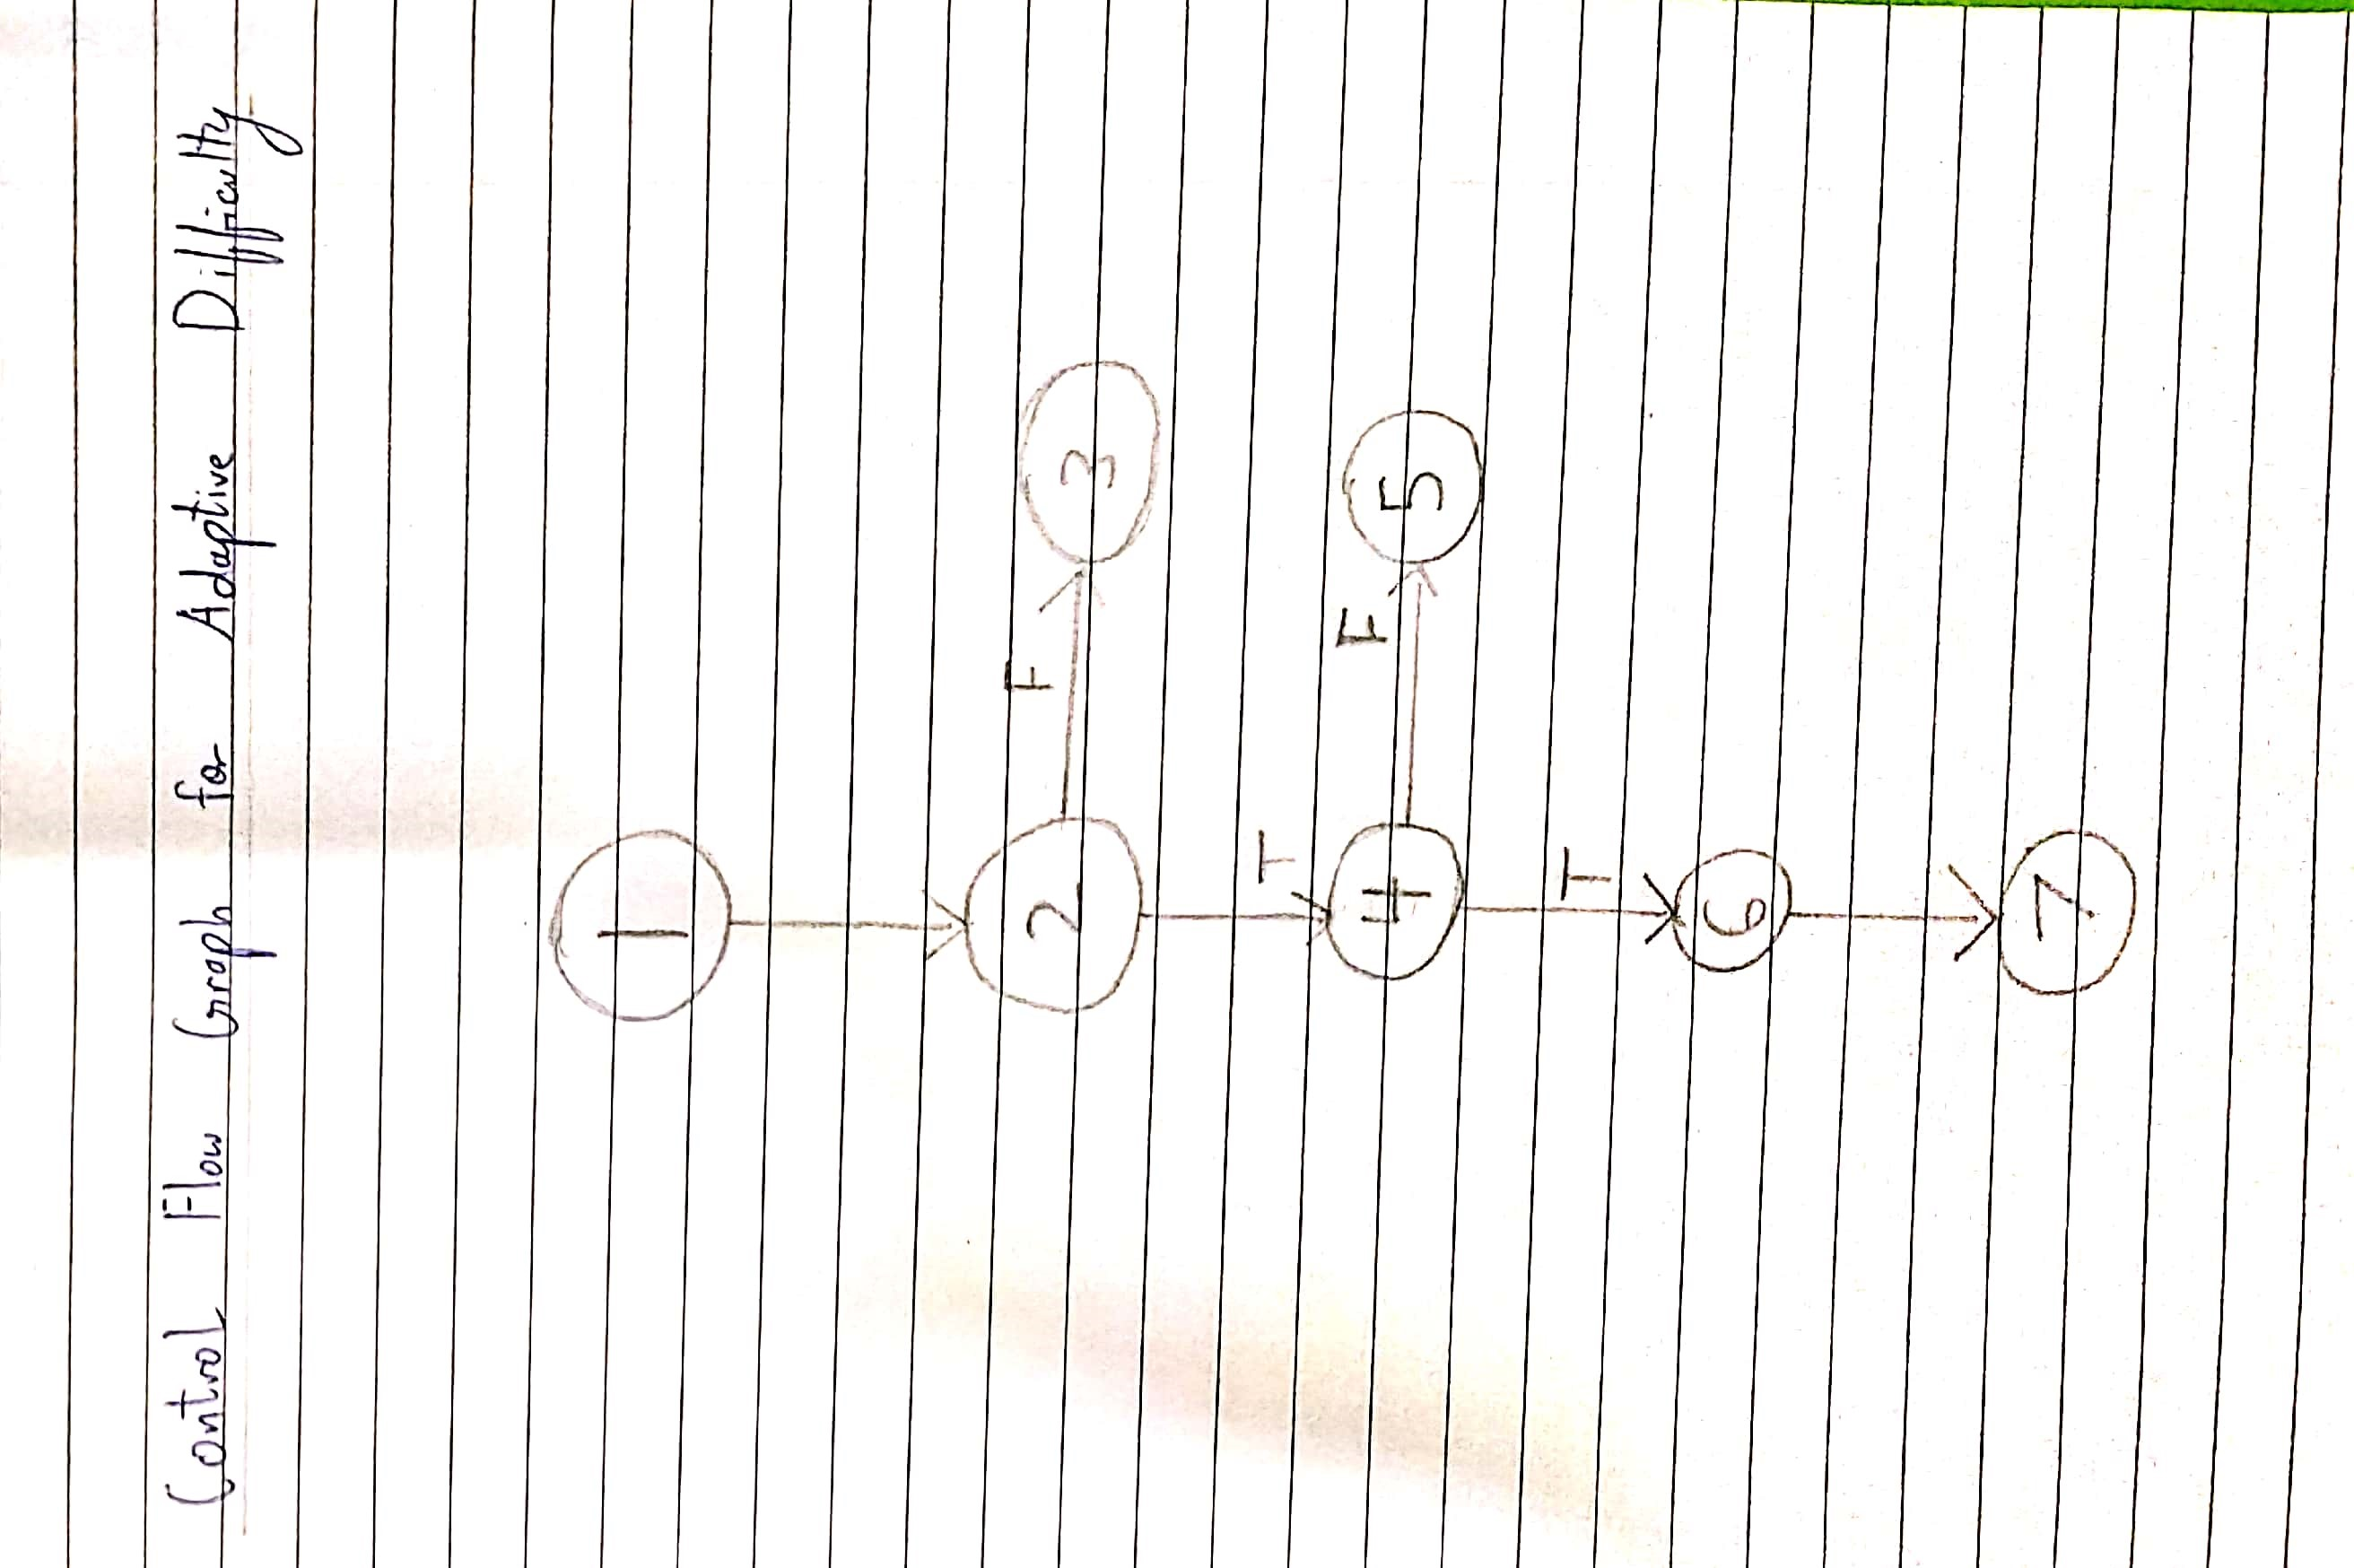 Control Flow Graph for Adaptive Difficulty
1
2
F
3
T
4
F
5
T
6
7